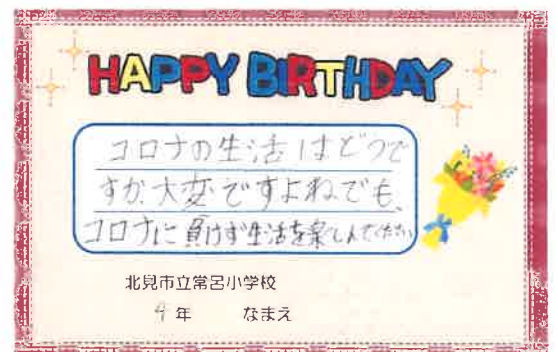 HAPPY BIRTHDAY
コロナの生活はどうで
すか、大変ですよねでも、
コロナに負けず生活を楽しんでください
北見市立常呂小学校
4年 なまえ